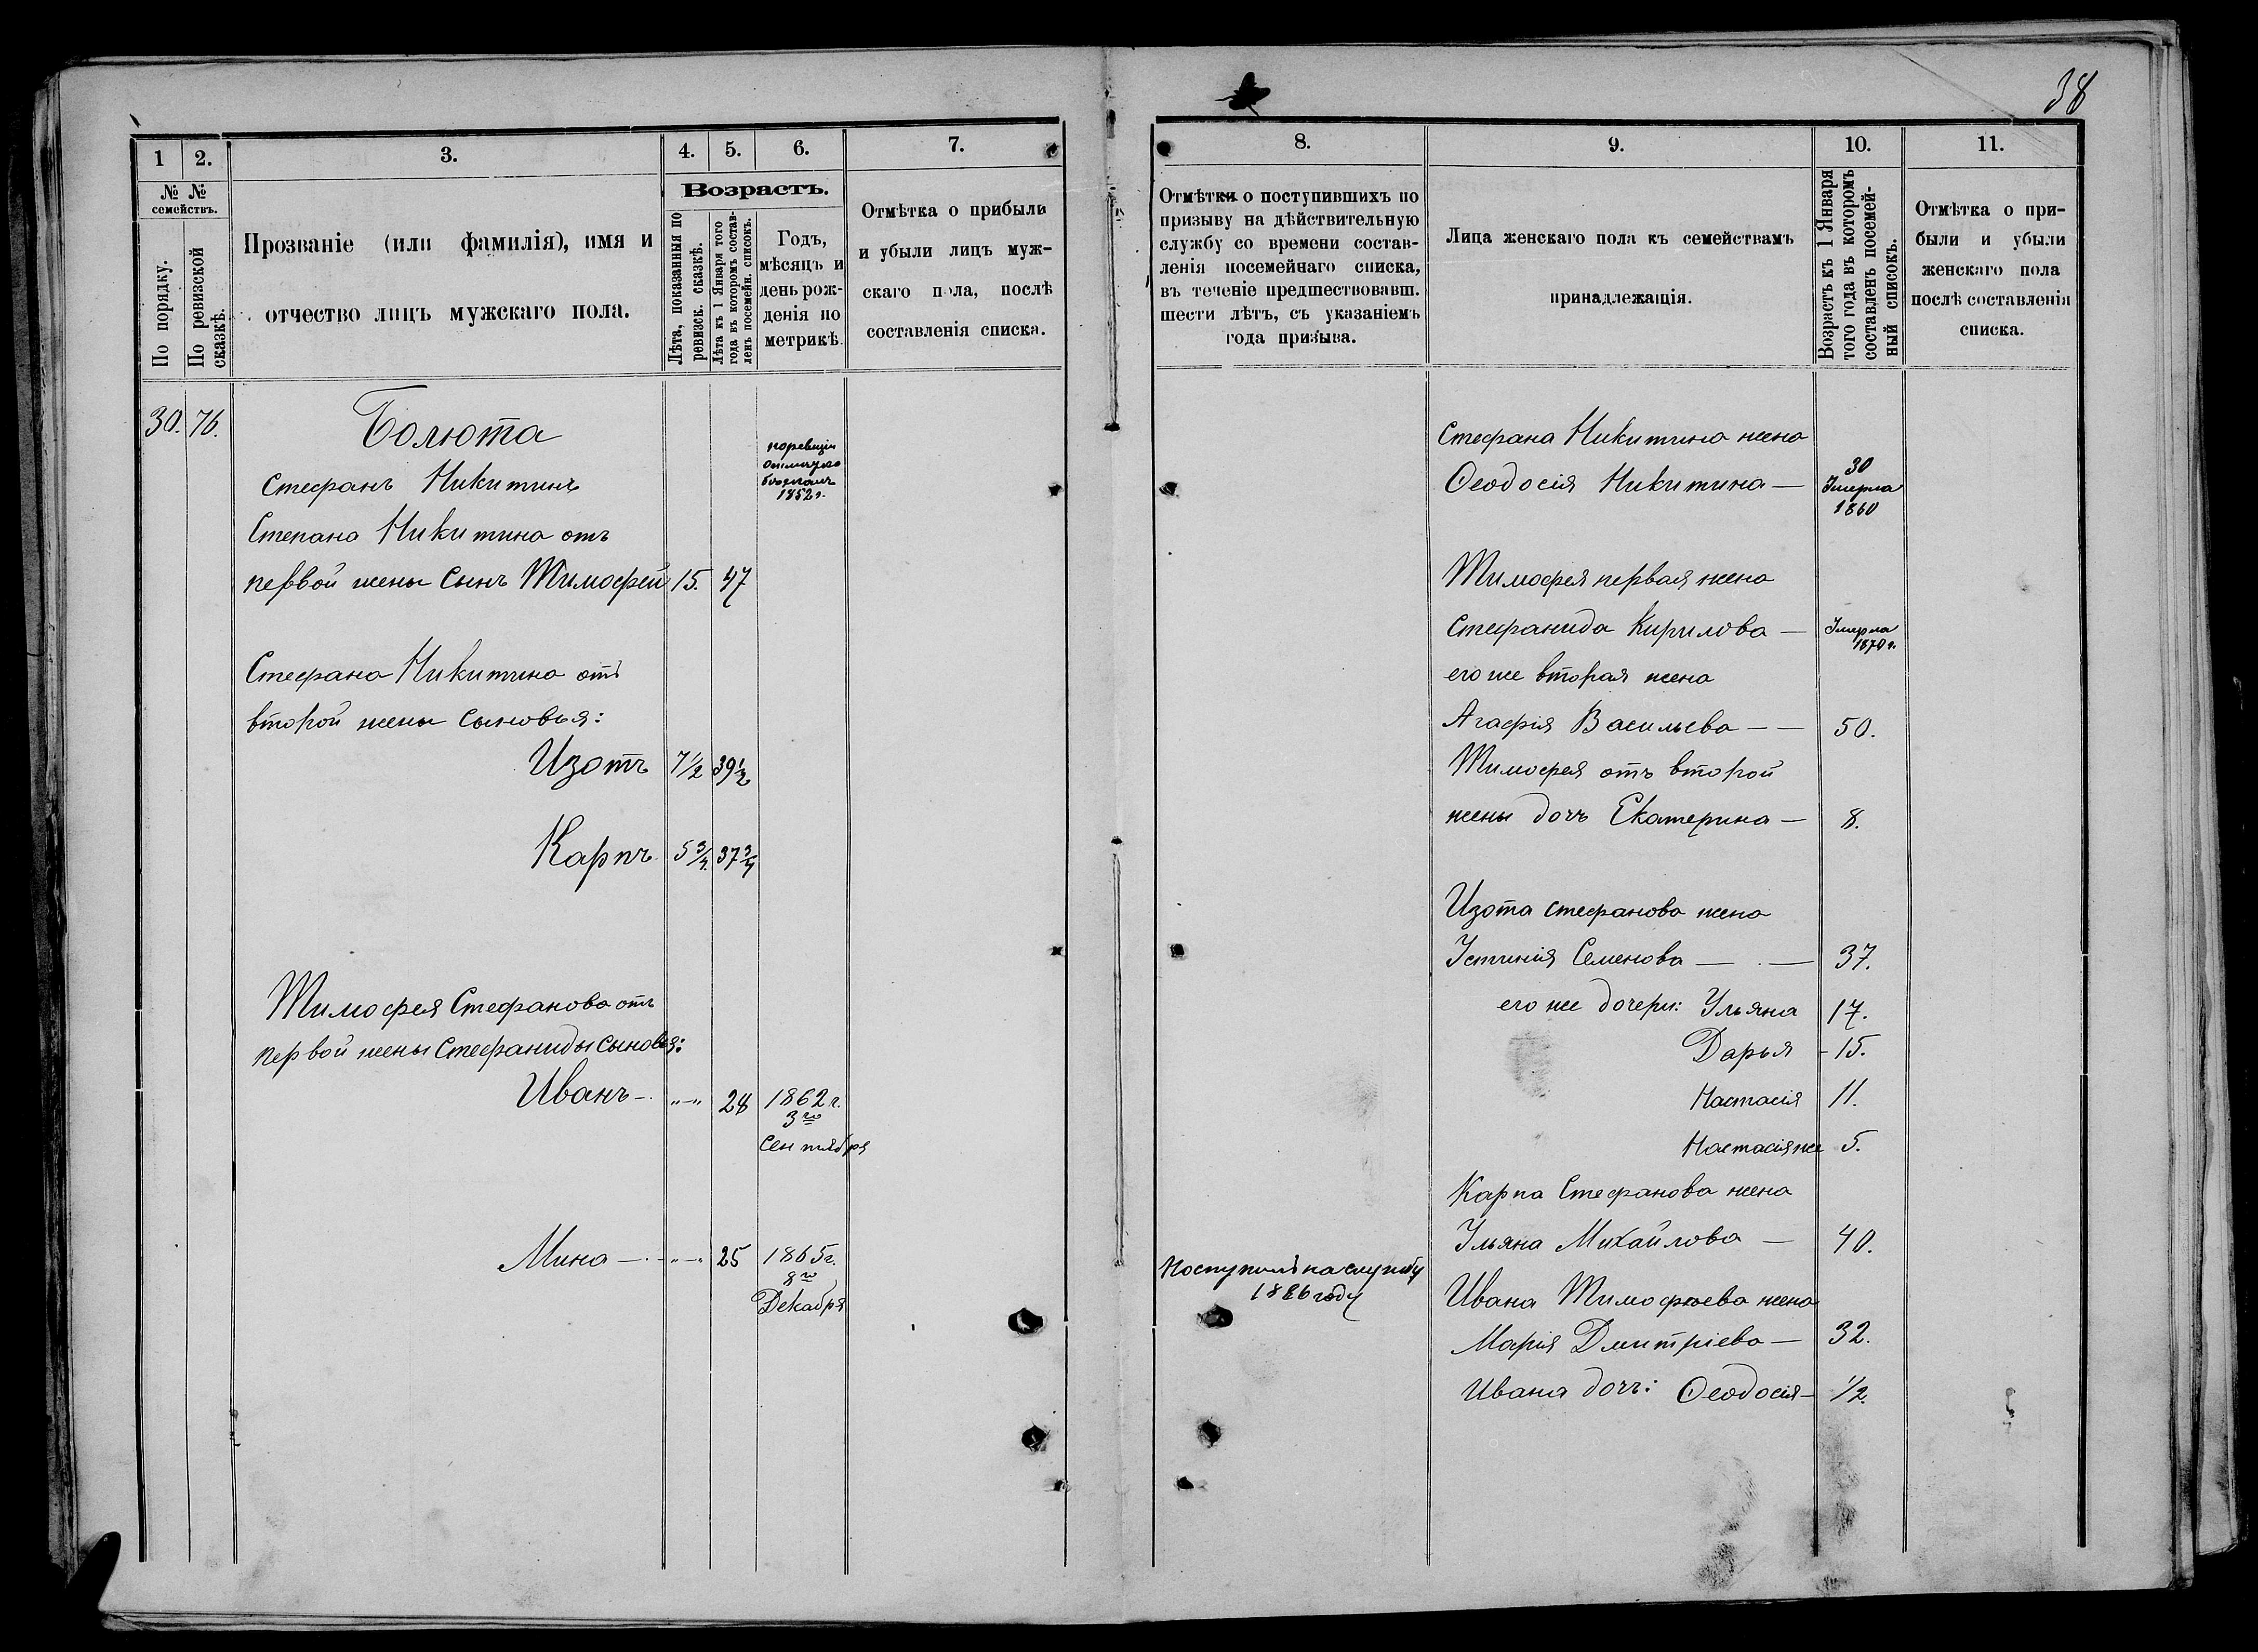 38
1
2.
3.
4.
5.
6.
7.
№ №
семействъ.
По порядку.
По ревизской
сказкѣ.
Прозваніе (или фамилія), имя и
отчество лицъ мужскаго пола.
Возрастъ.
Лѣта, показанныя по
ревизск. сказкѣ.
Лѣта къ 1 Января того
года въ которомъ состав-
ленъ посемейн. списокъ.
Годъ,
мѣсяцъ и
день рож-
денія по
метрикѣ.
Отмѣтка о прибыли
и убыли лицъ муж-
скаго пола, послѣ
составленія списка.
30. 76.
Болюта
Стефанъ Никитинъ
1852 г.
Степана Никитина отъ
первой жены сынъ Тимофей 15. 47
Стефана Никитина отъ
второй жены сыновья:
Изотъ 7 1/2 39 1/2
Карпъ 5 3/4. 37 3/4
Тимофея Стефанова отъ
первой жены Стефаниды сыновья:
Иванъ — „—„ 28 1862 г.
3го
Сентября
Мина — „—„ 25 1865 г.
8го
Декабря
8.
9.
10.
11.
Отмѣтки о поступившихъ по
призыву на дѣйствительную
службу со времени состав-
ленія посемейнаго списка,
въ теченіе предшествовавш.
шести лѣтъ, съ указаніемъ
года призыва.
Лица женскаго пола къ семействамъ
принадлежащія.
Возрастъ къ 1 Января
того года въ которомъ
составленъ посемей-
ный списокъ.
Отмѣтка о при-
были и убыли
женскаго пола
послѣ составленія
списка.
Стефана Никитина жена
Ѳеодосія Никитина — 30
Умерла
1860
Тимофея первая жена
Стефанида Кирилова — Умерла
1870 г.
его же вторая жена
Агафія Васильева — — 50.
Тимофея отъ второй
жены дочь Екатерина — 8.
Изота Стефанова жена
Устинія Семенова — . — 37.
его же дочери: Ульяна 17.
Дарья - 15.
Настасія 11.
Настасія же 5.
Карпа Стефанова жена
Ульяна Михайлова — 40.
Поступилъ на службу
1886 году
Ивана Тимофѣева жена
Марія Дмитріева — 32.
Ивана дочь: Ѳеодосія — 1/2.